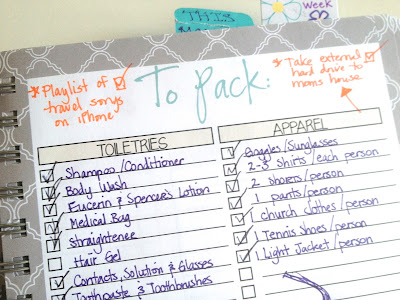 THIS
Week
* Playlist of
travel songs
on iPhone
To pack:
* Take external
hard drive to
moms house
TOILETRIES
Shampoo/Conditioner
Body Wash
Eucerin & Spencer's Lotion
Medical Bag
Straightener
Hair Gel
Contacts, Solution & Glasses
Toothpaste & Toothbrushes
APPAREL
Goggles/Sunglasses
2-3 Shirts/each person
2 Shorts/person
1 pants/person
1 church clothes/person
1 Tennis Shoes/person
1 Light Jacket/person